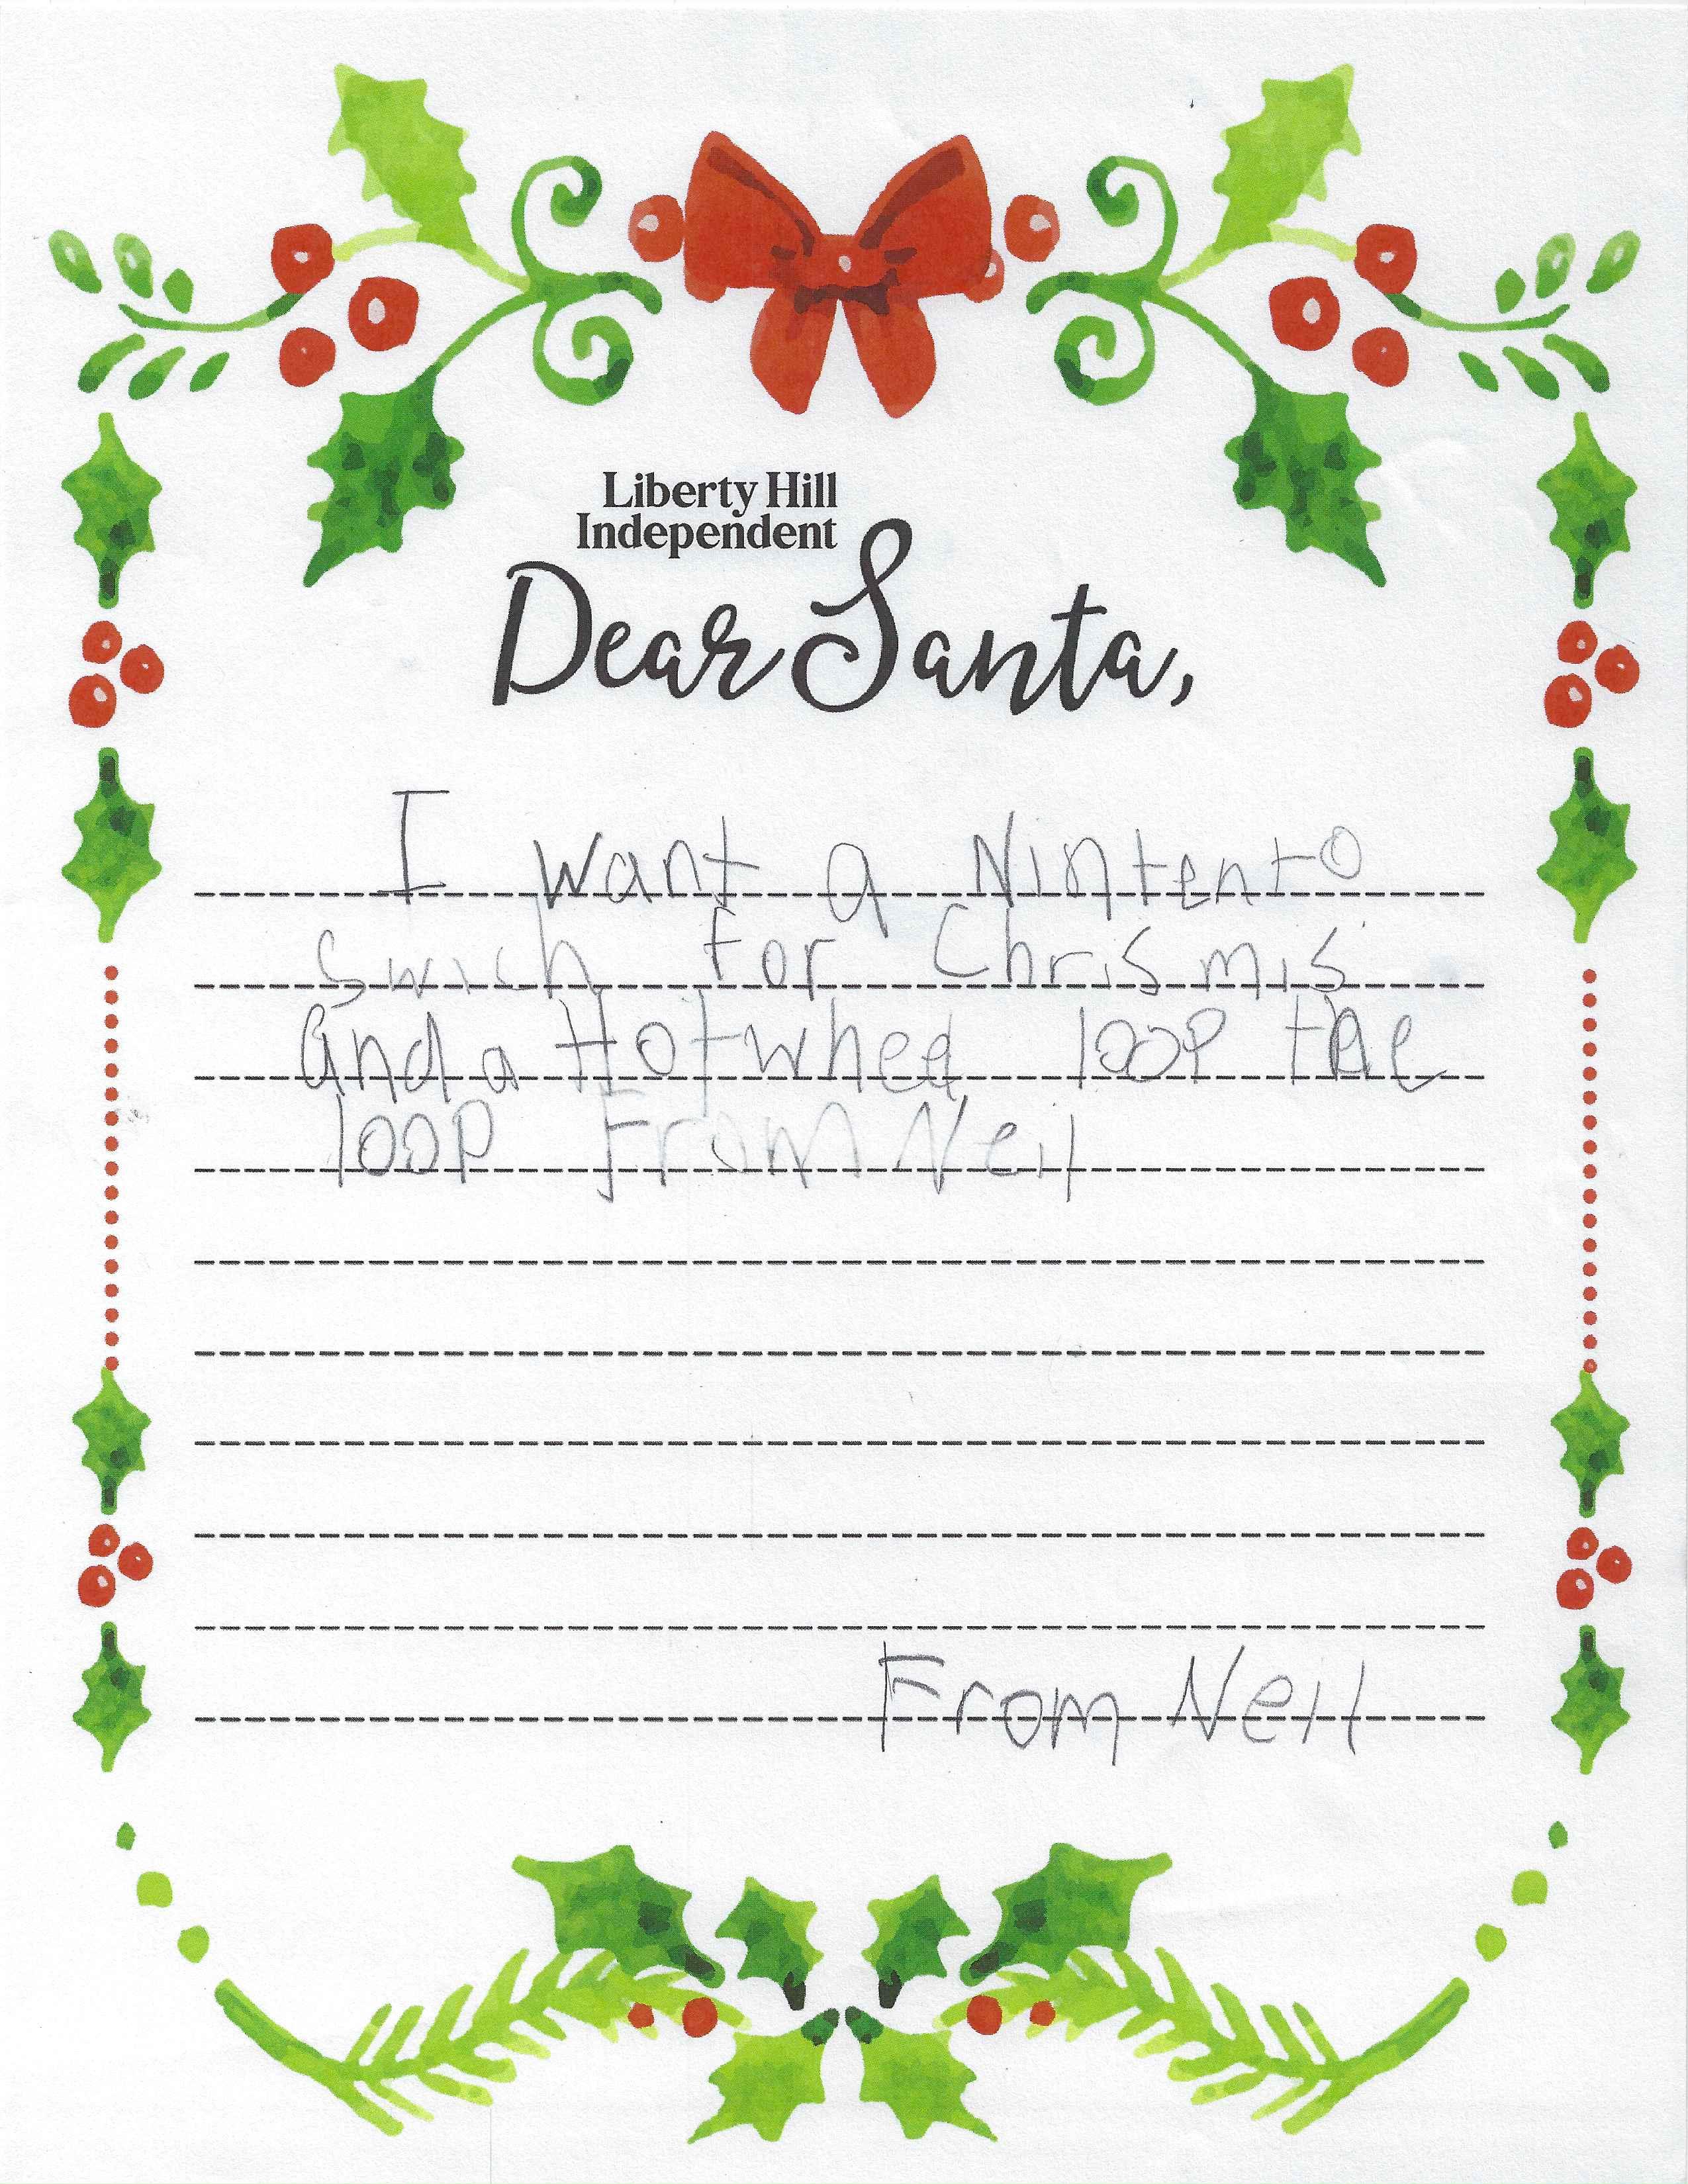 Liberty Hill
Independent
Dear Santa,
I want a Nintento
Swich for Chrismis
and a Hotwheel loop the
loop From Neil
From Neil